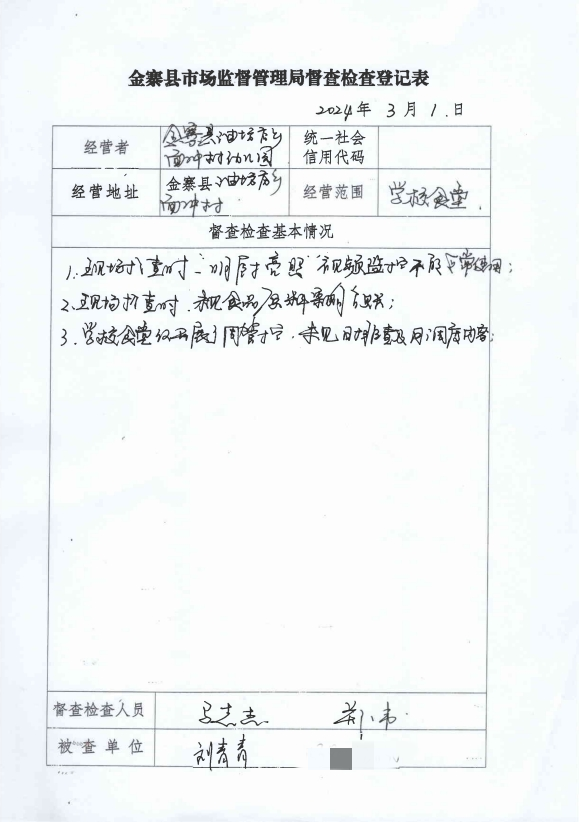 金寨县市场监督管理局督查检查登记表
2024年 3月 1.日
经营者
金寨县油坊店乡
面冲村幼儿园
统一社会
信用代码
经营地址
金寨县油坊店乡
面冲村
经营范围
学校食堂.
督查检查基本情况
1.现场检查时"明厨亮照"视频监控不能正常使用;
2.现场检查时,未见食品原料采购台账;
3.学校食堂仅开展了周管控,未见日排查及月调度内容;
督查检查人员
被查单位
刘青青